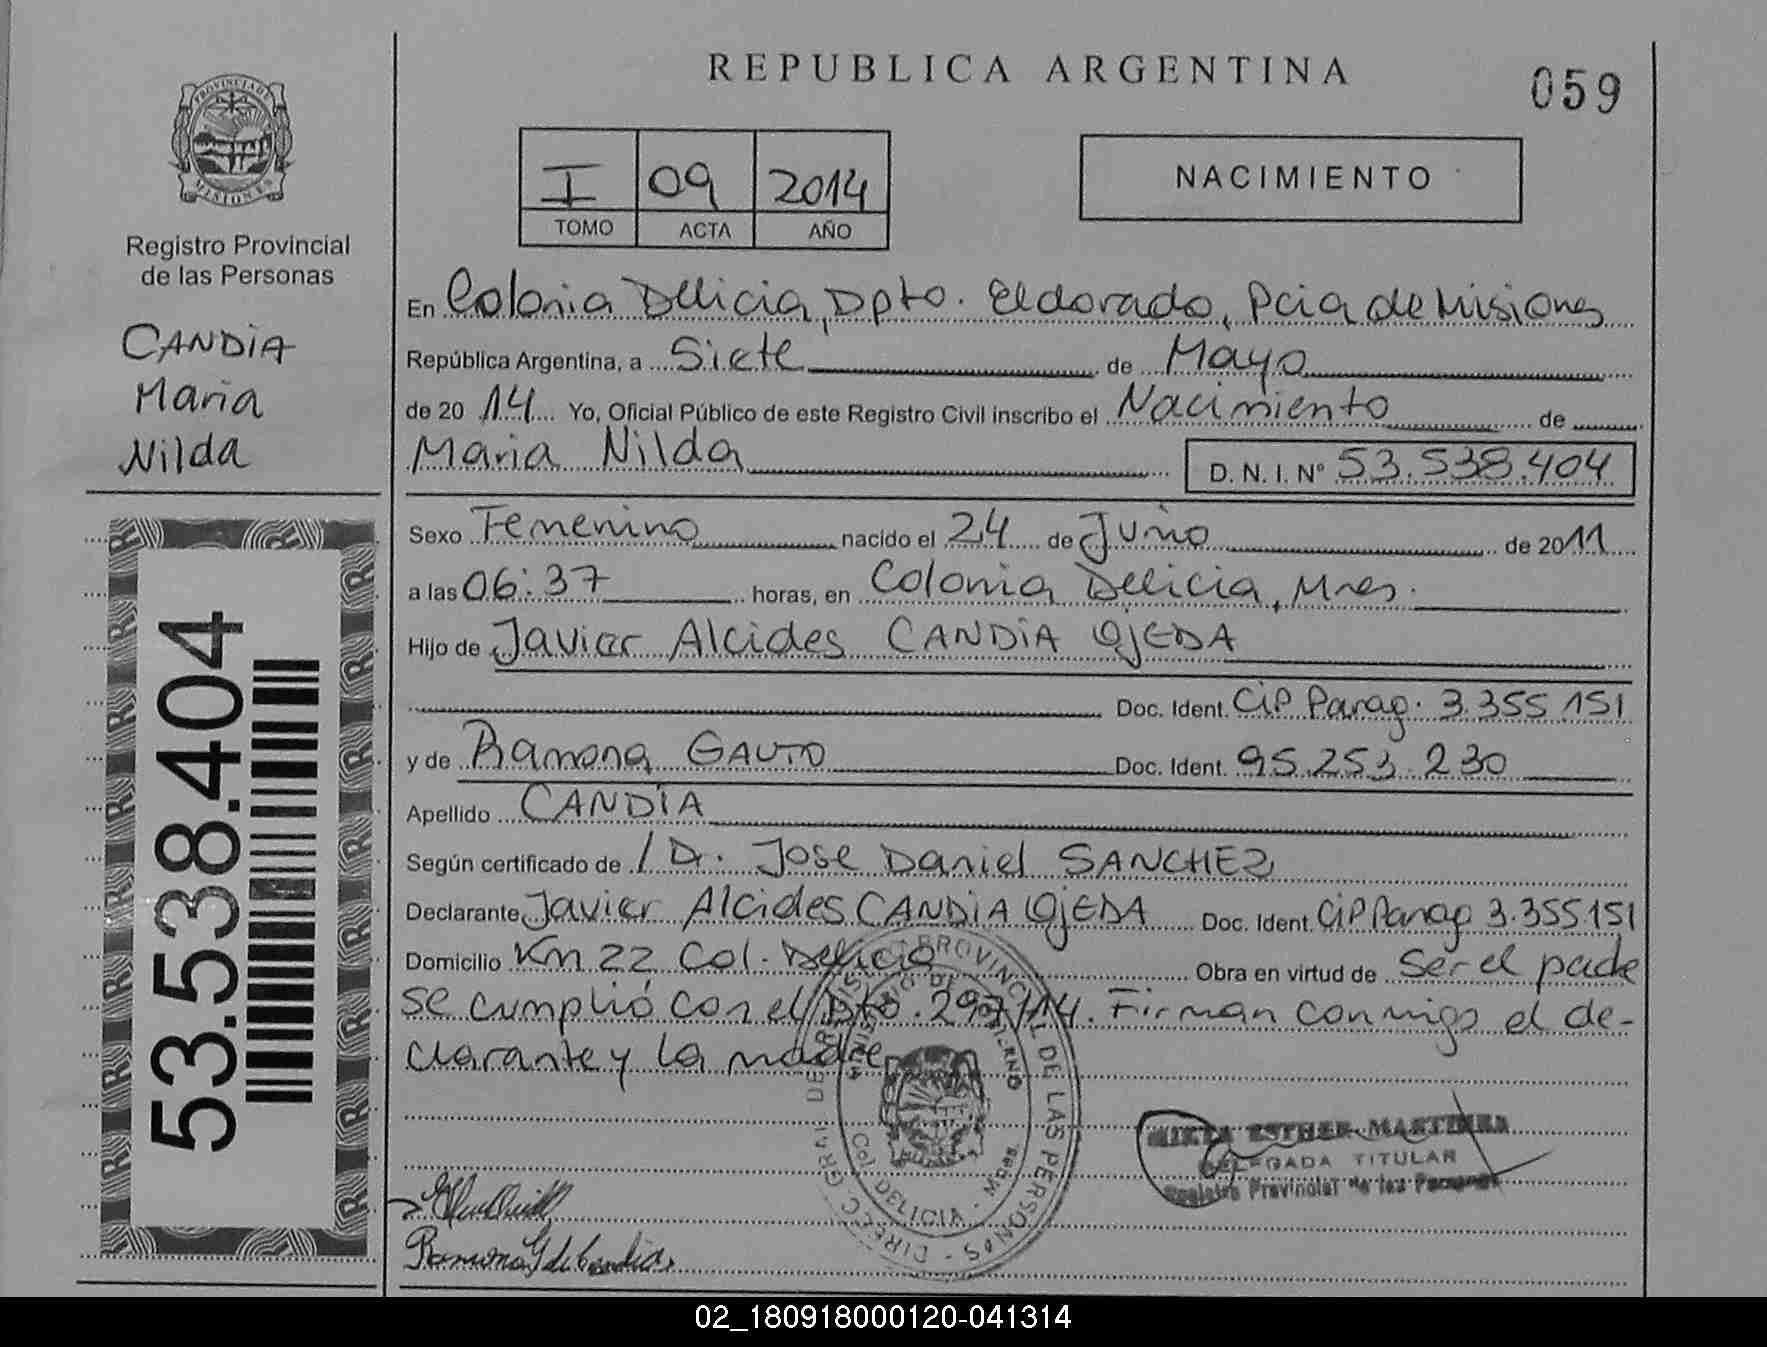 REPUBLICA ARGENTINA
059
PROVINCIA DE
MISIONES
Registro Provincial
de las Personas
CANDIA
Maria
Nilda
53.538.404
I 09 2014
TOMO ACTA AÑO
NACIMIENTO
En Colonia Delicia, Dpto. Eldorado, Pcia de Misiones
República Argentina, a Siete de Mayo
de 20 14 Yo, Oficial Público de este Registro Civil inscribo el Nacimiento de
Maria Nilda D. N. I. Nº 53.538.404
Sexo Femenino nacido el 24 de Junio de 2011
a las 06:37 horas, en Colonia Delicia, Mnes.
Hijo de Javier Alcides CANDIA OJEDA
Doc. Ident. CiP Parag. 3.355.151
y de Ramona GAUTO Doc. Ident. 95.253.230
Apellido CANDIA
Según certificado de /Dr. Jose Daniel SANCHEZ
Declarante Javier Alcides CANDIA OJEDA Doc. Ident. CiP Parag 3.355151
Domicilio Km 22 Col. Delicia Obra en virtud de ser el padre
se cumplió con el Dto. 297/14. Firman conmigo el de-
clarante y la madre
DIREC. GRAL. DE REGISTRO PROVINCIAL DE LAS PERSONAS
MINISTERIO DE GOBIERNO
Col. DELICIA - Mnes.
MIRTA ESTHER MARTINEZ
DELEGADA TITULAR
Registro Provincial de las Personas
Ramona G de Candia
02_180918000120-041314